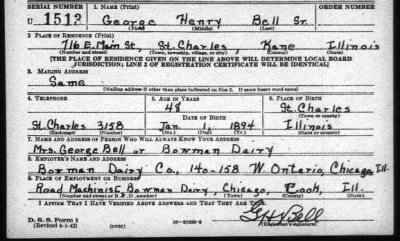 SERIAL NUMBER
1. NAME (Print)
ORDER NUMBER
U 1512 George Henry Bell Sr.
(First) (Middle) (Last)
2. PLACE OF RESIDENCE (Print)
716 E. Main St, St. Charles, Kane Illinois
(Number and street) (Town, township, village, or city) (County) (State)
[THE PLACE OF RESIDENCE GIVEN ON THE LINE ABOVE WILL DETERMINE LOCAL BOARD
JURISDICTION; LINE 2 OF REGISTRATION CERTIFICATE WILL BE IDENTICAL]
3. MAILING ADDRESS
Same
[Mailing address if other than place indicated on line 2. If same insert word same]
4. TELEPHONE
5. AGE IN YEARS
6. PLACE OF BIRTH
48
St. Charles
DATE OF BIRTH
(Town or county)
St. Charles 3158 Jan. 1, 1894 Illinois
(Exchange) (Number) (Mo.) (Day) (Yr.) (State or country)
7. NAME AND ADDRESS OF PERSON WHO WILL ALWAYS KNOW YOUR ADDRESS
Mrs. George Bell or Bowman Dairy
8. EMPLOYER'S NAME AND ADDRESS
Bowman Dairy Co., 140-158 W. Ontario, Chicago, Ill.
9. PLACE OF EMPLOYMENT OR BUSINESS
Road Machinist Bowman Dairy, Chicago, Cook, Ill.
(Number and street or R. F. D. number) (Town) (County) (State)
I AFFIRM THAT I HAVE VERIFIED ABOVE ANSWERS AND THAT THEY ARE TRUE.
D. S. S. Form 1
(Revised 4-1-42) (over)
(Registrant's signature)